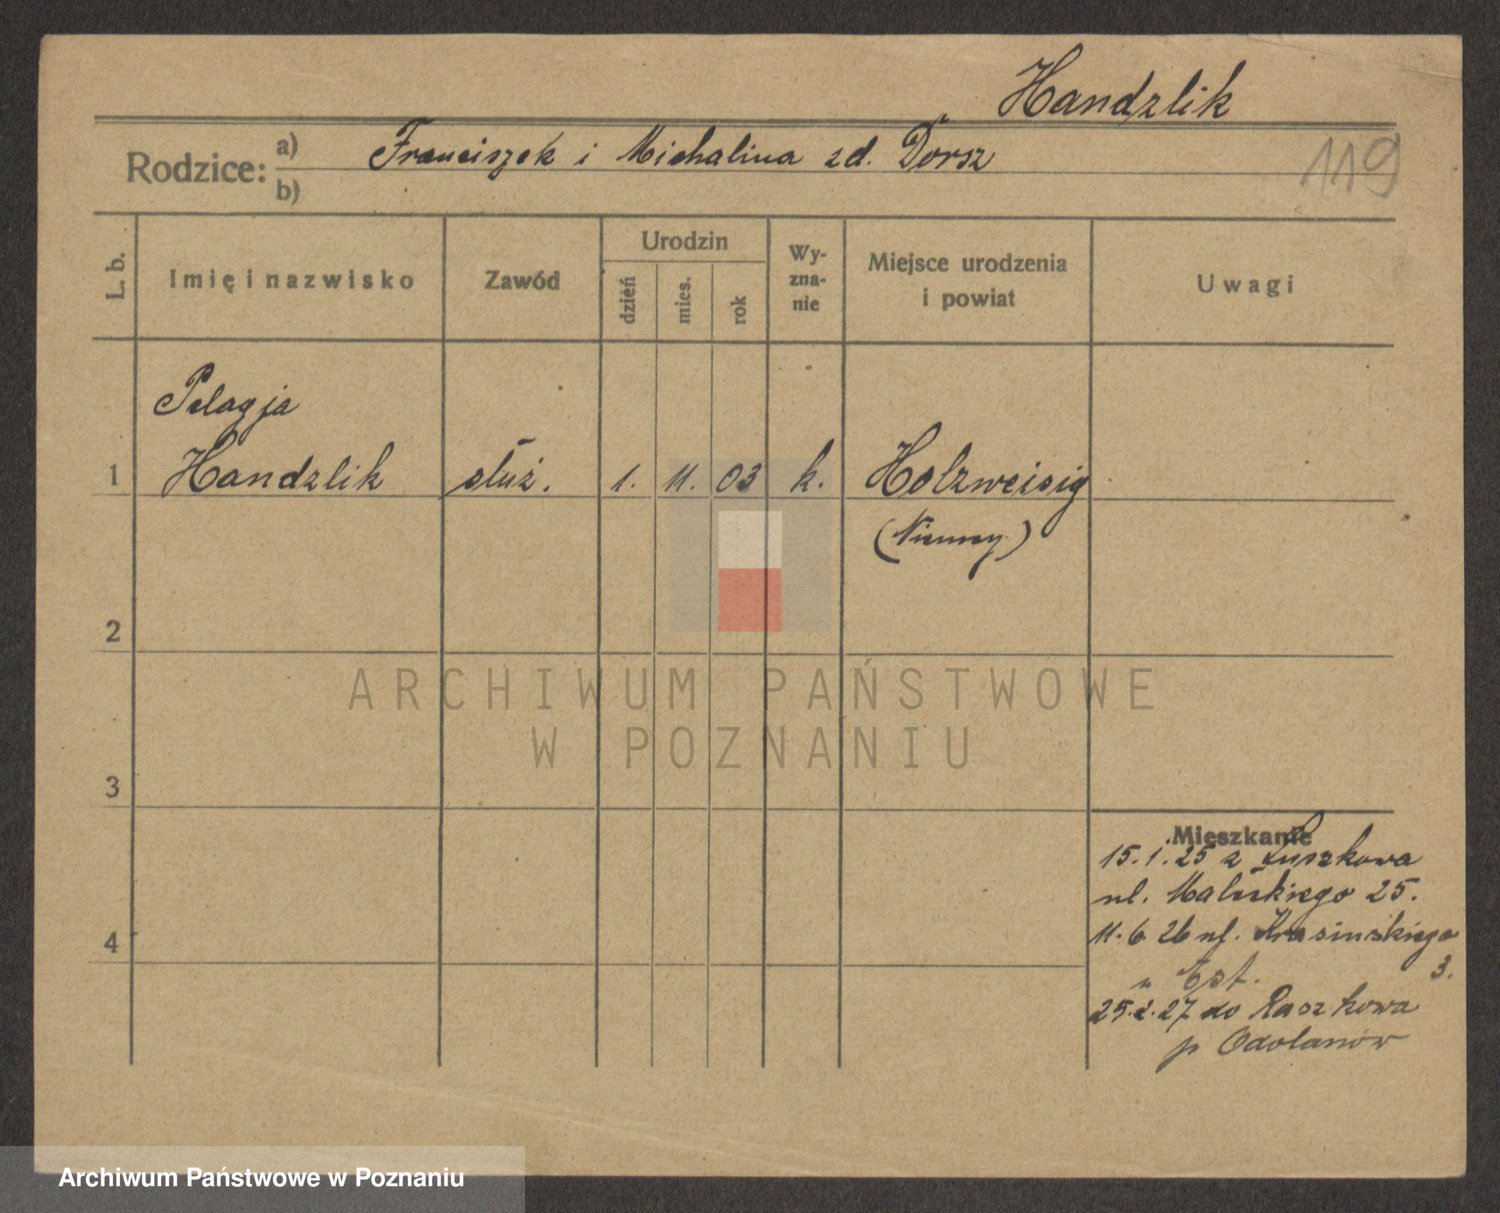 Handzlik
119
Rodzice: a) Franciszek i Michalina zd. Dorsz
b)
L. b.
Imię i nazwisko
Zawód
Urodzin
dzień
mies.
rok
Wy-
zna-
nie
Miejsce urodzenia
i powiat
Uwagi
Pelagja
1 Handzlik służ. 1. 11. 03 k. Holzweisig
(Niemcy)
2
3
4
Mieszkanie
15.1.25 z
ul. 25.
11.6.26 ul. Krasińskiego
3.
25.2.27 do Raszkowa
p Odolanów
ARCHIWUM PAŃSTWOWE
W POZNANIU
Archiwum Państwowe w Poznaniu